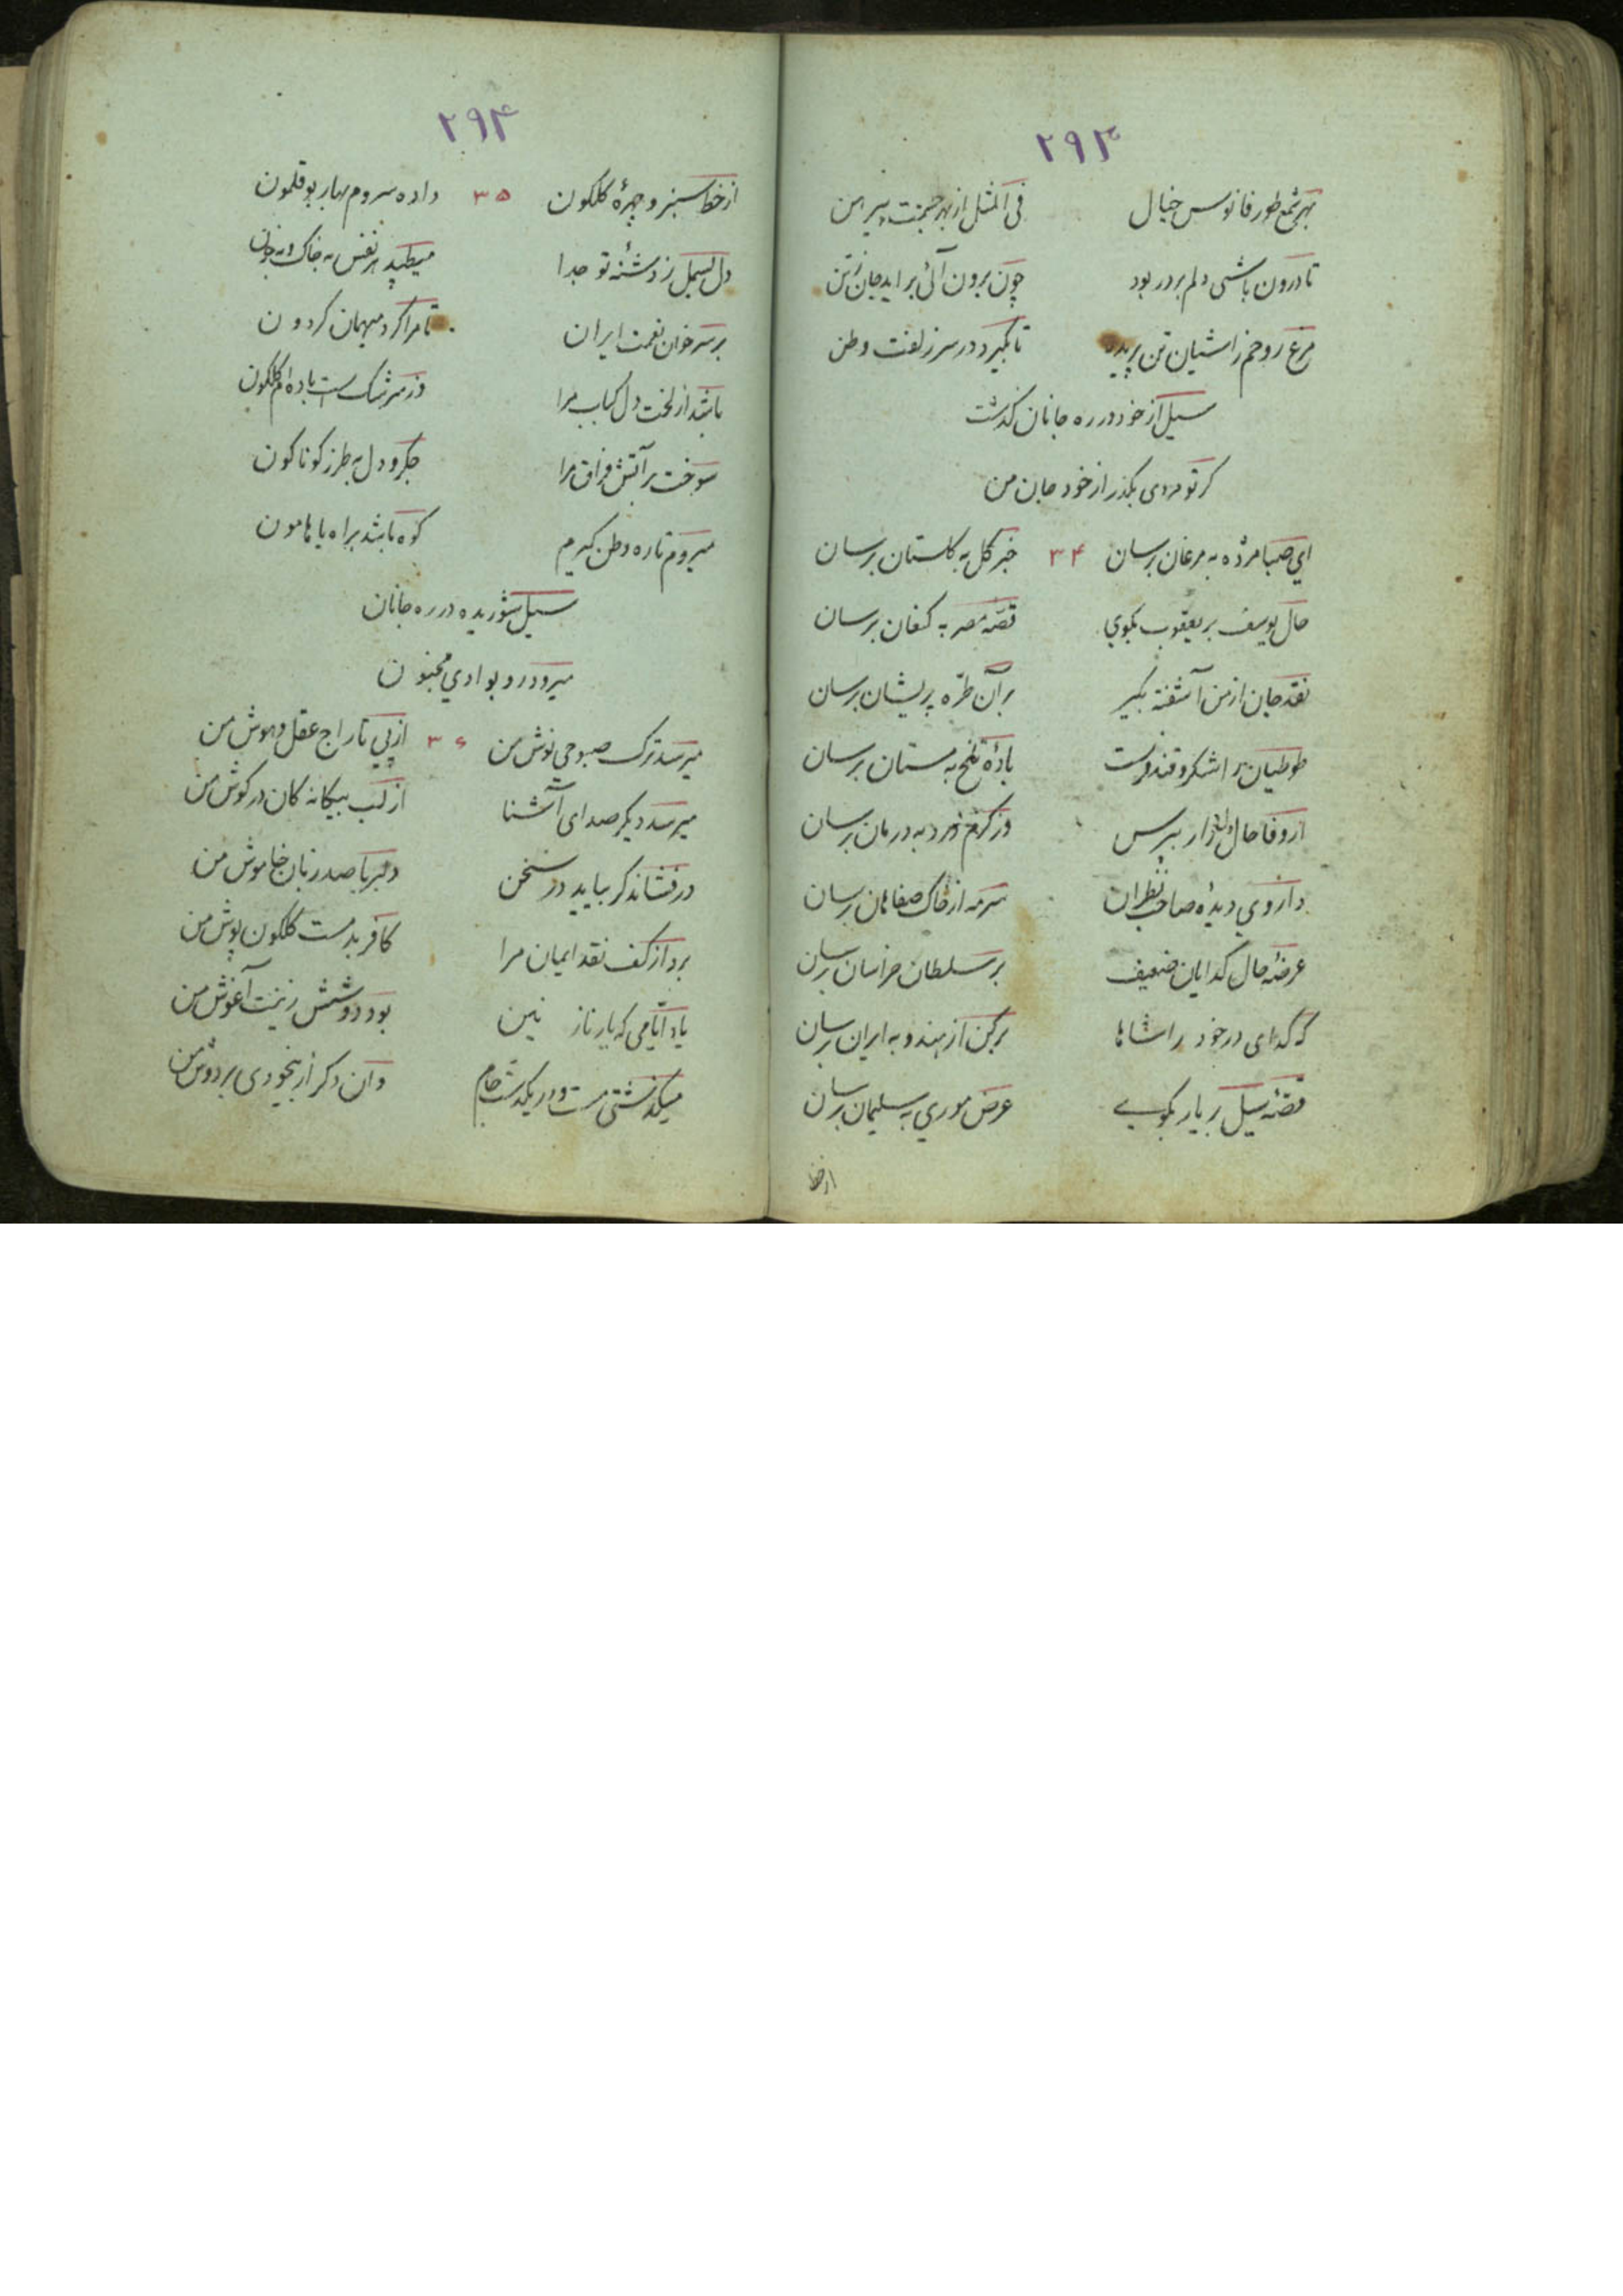 ۲۹۳
بهر شمع طور فانوس خیال فی المثل از بهر جسمت پیرهن
تا درون باشی دلم بر در بود چون برون آئی براید جان ز تن
مرغ روحم ز اشیان تن پرید تا بگیرد در سر زلفت وطن
سیل از خود در ره جانان گذشت
کر تو مردی بگذر از خود جان من
ای صبا مژده به مرغان برسان ۳۴ خبر کل به کلستان برسان
حال یوسف بر یعقوب بکوی قصّه مصر به کنعان برسان
نقد جان از من آشفته بگیر بر آن طرّه پریشان برسان
طوطیان را شکر و قند فرست بادهٔ تلخ به مستان برسان
از وفا حال دل زار بپرس وز کرم درد به درمان برسان
داروی دیدهٔ صاحب نظران سرمه از خاک صفاهان برسان
عرضهٔ حال کدایان ضعیف بر سلطان خراسان برسان
که گدای در خود را شاها بر کن از هند و به ایران برسان
قصّهٔ سیل بر یار بکوی عرض موری به سلیمان برسان
از خط
۲۹۴
از خط سبز و چهرهٔ کلکون ۳۵ داده سروم بهار بوقلمون
دل بسمل ز دشنهٔ تو جدا میطپد هر نفس به خاک و به خون
بر سر خوان نعمت ایران تا مرا کرد میهمان کردون
باشد از لخت دل کباب مرا وز سرشک است باده‌ام کلکون
سوخت بر آتش فراق مرا جکر و دل به طرز کوناکون
میروم تا ره وطن کیرم کوه باشد براه یا هامون
سیل شوریده در ره جانان
میرود رو بوادی مجنون
میرسد ترک صبوحی نوش من ۳۶ از پی تاراج عقل و هوش من
میرسد دیگر صدای آشنا از لب بیکانه کان در کوش من
در فشاند کر بیاید در سخن دلبر با صد زبان خاموش من
برد از کف نقد ایمان مرا کافر بدمست کلکون پوش من
یاد ایّامی که یار نازنین بود دوشش زینت آغوش من
میکذشتی مست و در یکدست جام وان دکر از بیخودی بر دوش من